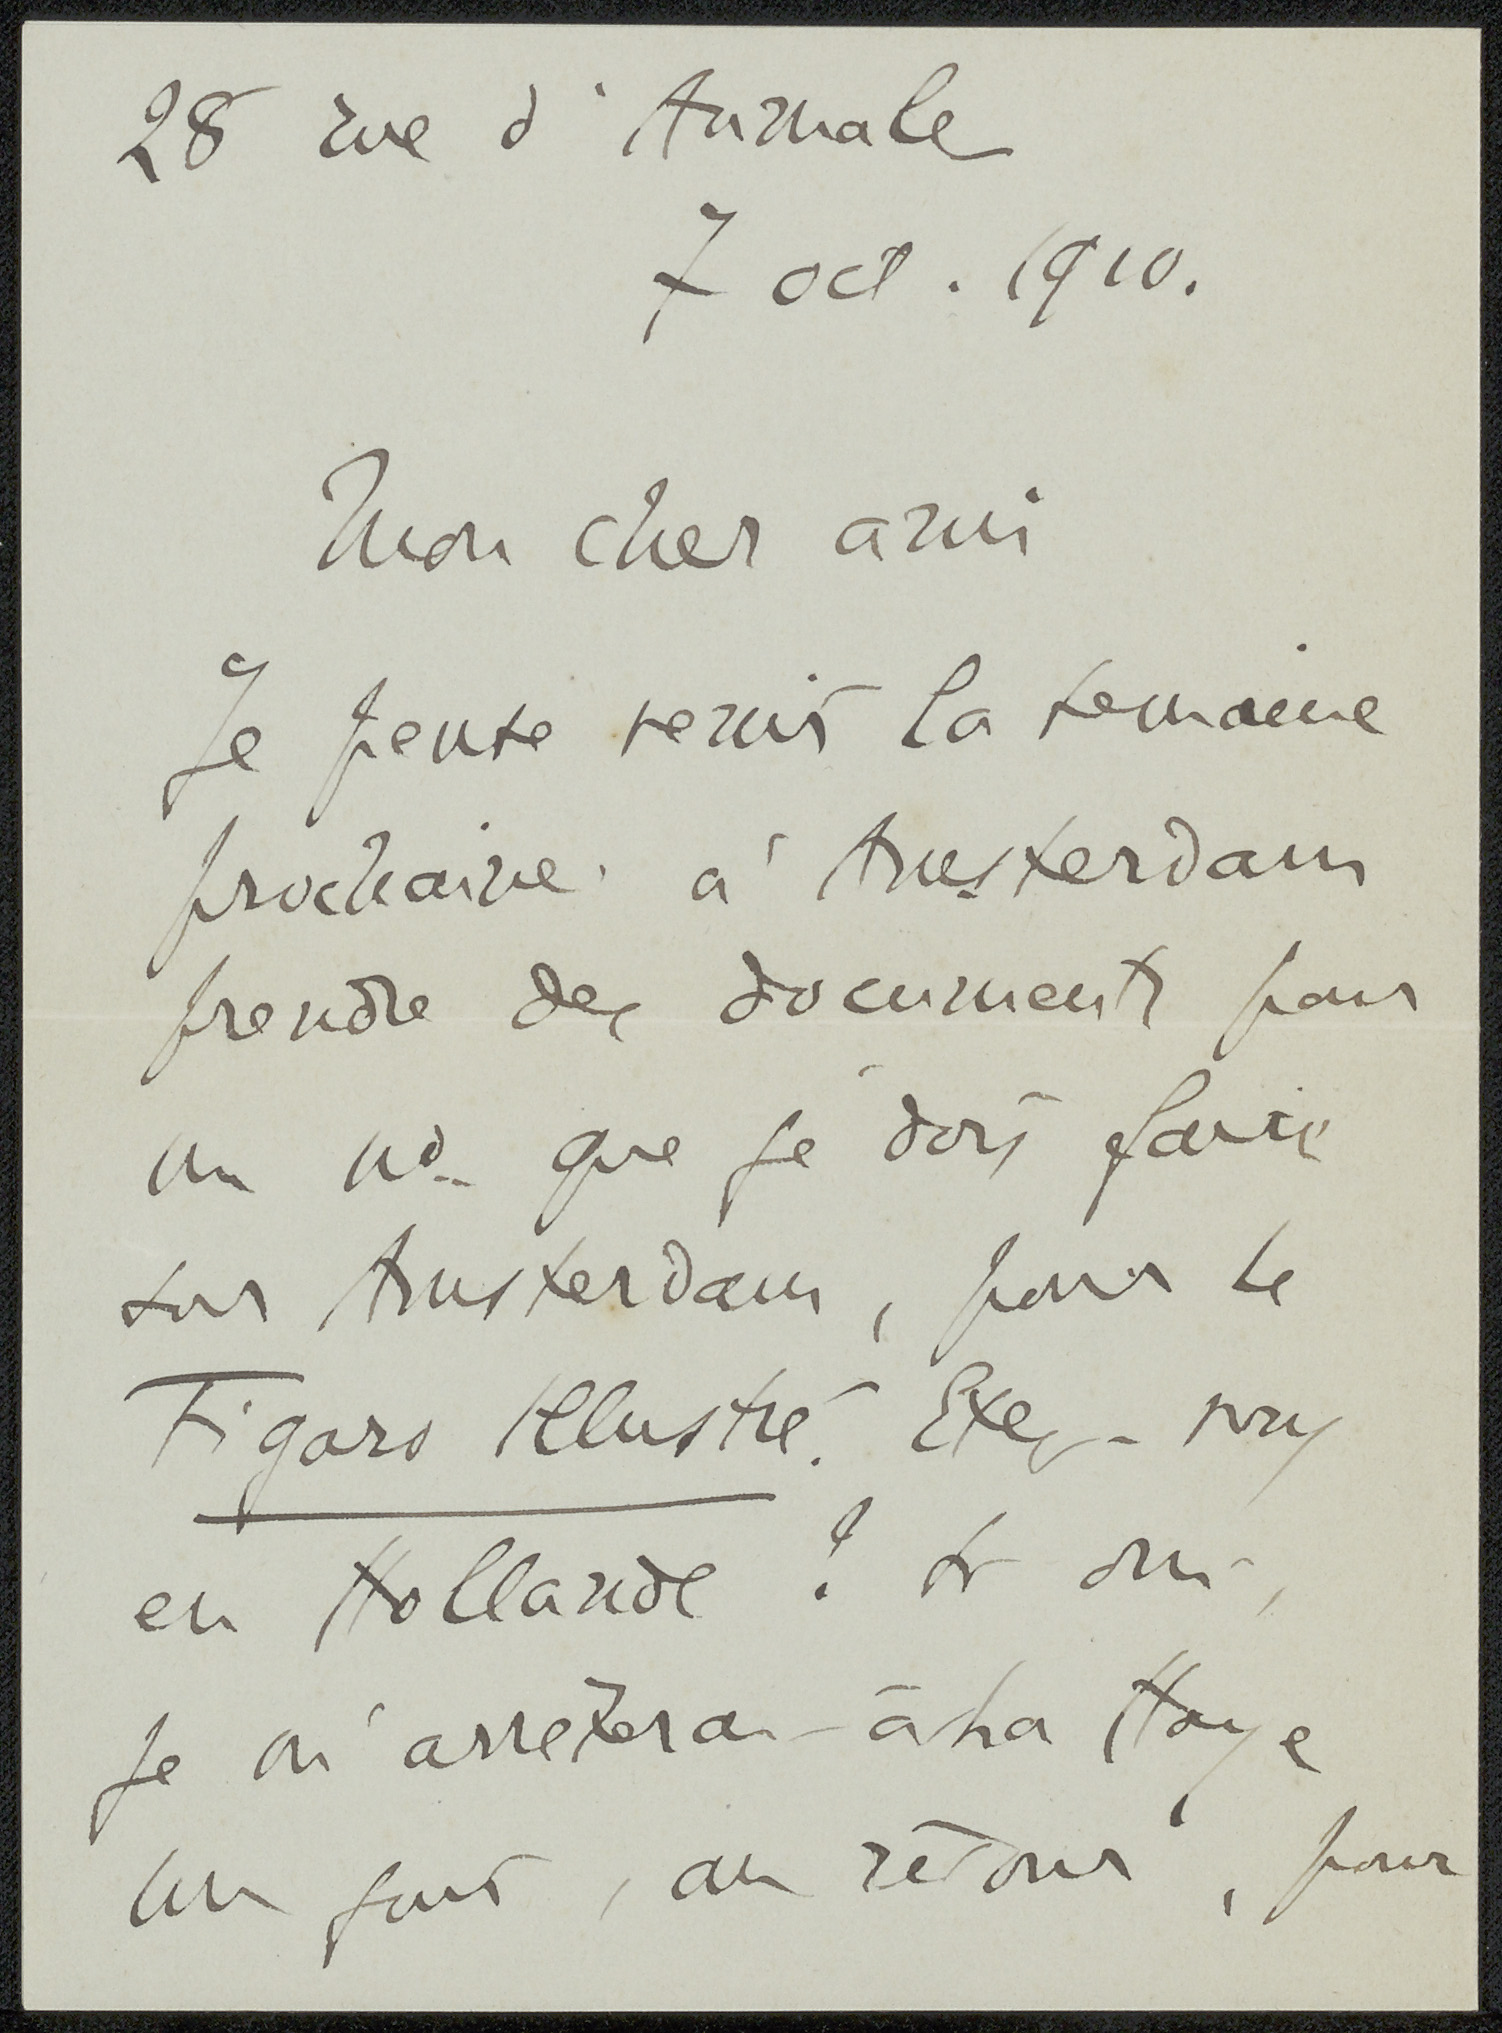 28 rue d'Aumale
7 oct. 1910.
Mon cher ami
Je pense venir la semaine
prochaine à Amsterdam
prendre des documents pour
un no que je dois faire
sur Amsterdam, pour le
Figaro Illustré. Etes-vous
en Hollande ? Si oui,
je m'arrêterai à La Haye
un jour, au retour, pour